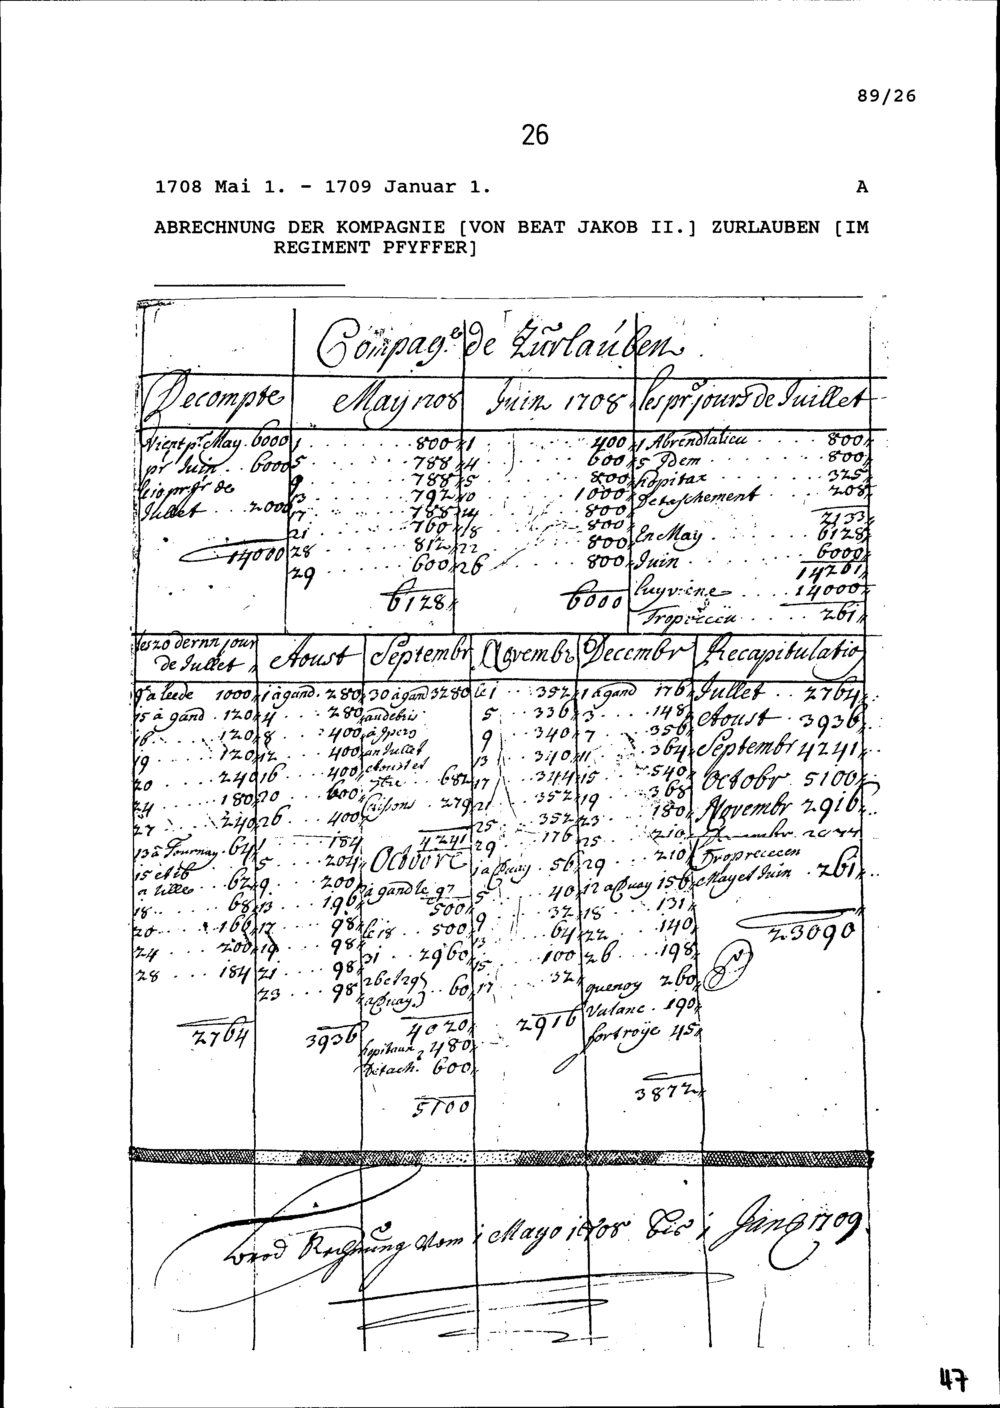 89/26
26
1708 Mai 1. - 1709 Januar 1. A
ABRECHNUNG DER KOMPAGNIE [VON BEAT JAKOB II.] ZURLAUBEN [IM
REGIMENT PFYFFER]
Compag.e de Zurlauben
Decompte
pr May 6000
pr Juin 6000
Jullet 2000
14000
May 1708
1 800
5 788
9 788
13 792
17 788
21 760
28 812
29 600
6128
Juin 1708
1 400
4 600
5 800
10 1000
14 800
18 800
22 800
26 800
6000
les pr jours de Juillet
800
5 Idem 800
hopitax 325
Detaschement 208
2133
En May 6128
Juin 6000
14261
14000
261
les 20 dernn jour
de Jullet
1000
15 à gand 120
16 120
19 120
20 240
24 180
27 240
13 a Tournay 64
15 et 16
a Lilles 62
18 68
20 166
24 200
28 184
2764
Aoust
1 a gand 280
4 280
8 400
12 400
16 400
20 600
26 400
1 184
5 204
9 200
13 196
17 98
19 98
21 98
23 98
3936
Septembr
30 a gand 3280
682
279
4241
Octobre
à gand le 97
500
le 18 500
31 2960
60
4020
hopitaux 480
Detach. 600
5100
Novembr
le 1 352
5 336
9 340
13 340
17 344
21 352
25 352
29 176
56
5 40
9 32
13 64
15 100
17 32
2916
Decembr
1 a gand 176
3 148
7 356
11 364
15 540
19 368
23 180
25 210
29 210
156
131
18 140
22
26 198
quenoy 260
Valanc. 190
45
3872
Recapitulatio
Jullet 2764
Aoust 3936
Septembr 4241
Octobr 5100
Novembr 2916
May et Juin 261
23090
brod Rechnung Vom 1 Mayo 1708 bis 1 Jan 1709.
47